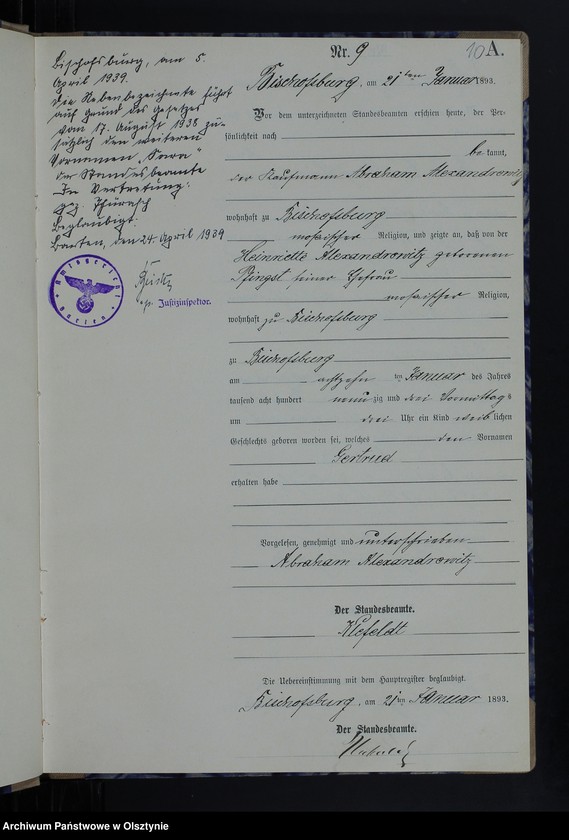 Bischofsburg, am 5.
April 1939.
Die Nebenbezeichnete führt
auf Grund des Gesetzes
vom 17. August 1938 zu-
sätzlich den weiteren
Vornamen „Sara“
Der Standesbeamte
In Vertretung:
gez.
Beglaubigt:
Barten, den 24. April 1939
Amtsgericht
Barten
Justizinspektor.
Nr. 9
10 A.
Bischofsburg, am 21ten Januar 1893.
Vor dem unterzeichneten Standesbeamten erschien heute, der Per-
sönlichkeit nach
bekannt,
der Kaufmann Abraham Alexandrowitz
wohnhaft zu Bischofsburg
mosaischer Religion, und zeigte an, daß von der
Heinriette Alexandrowitz geborenen
Pfingst seiner Ehefrau
mosaischer Religion,
wohnhaft zu Bischofsburg
zu Bischofsburg
am achtzehn ten Januar des Jahres
tausend acht hundert neunzig und drei Vormittags
um drei Uhr ein Kind weiblichen
Geschlechts geboren worden sei, welches den Vornamen
Gertrud
erhalten habe
Vorgelesen, genehmigt und unterschrieben
Abraham Alexandrowitz
Der Standesbeamte.
Die Uebereinstimmung mit dem Hauptregister beglaubigt.
Bischofsburg, am 21ten Januar 1893.
Der Standesbeamte.
Archiwum Państwowe w Olsztynie